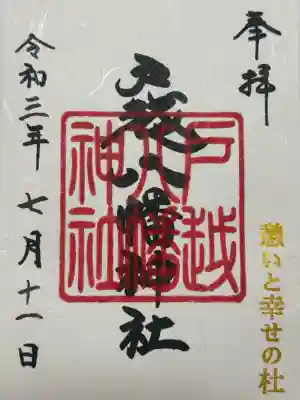 奉拝
戸越八幡神社
戸越
八幡
神社
憩いと幸せの杜
令和三年七月十一日